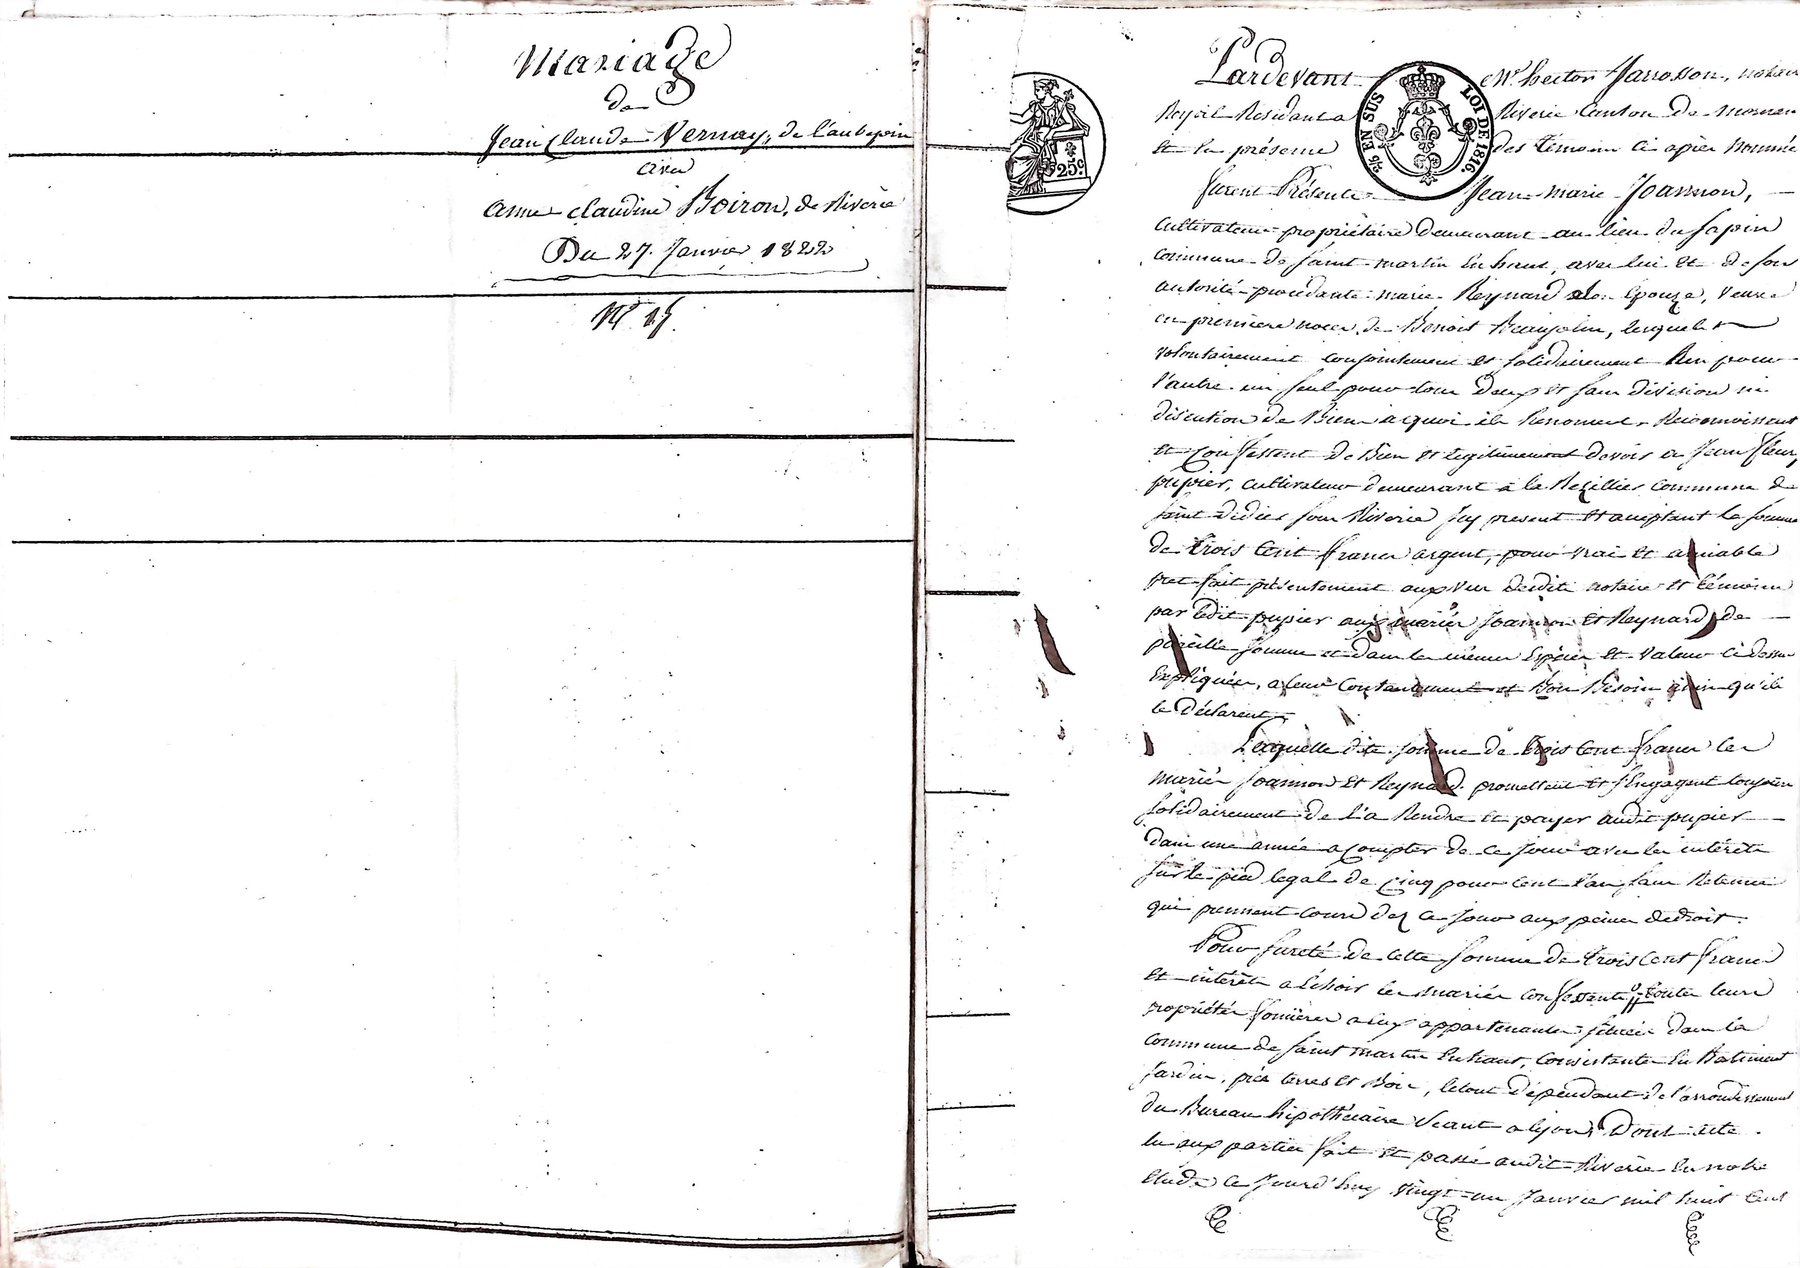 Mariage
de
Jean Claude Vernay, de l'aubepin
avec
anne claudine Boiron, de Riverie
Du 27. Janvier 1822
N° 15.
25c.
2/6 EN SUS LOI DE 1816.
Pardevant Me hector Jarrosson, notaire
Royal Résidant a Riverie Canton de mornan
et en présence des témoins ci après nommés
furent Présents Jean-marie Joannon,
cultivateur propriétaire demeurant au lieu du sapin
commune de saint martin En haut, avec lui et de son
autorité procédante marie Reynard son épouze, veuve
en première noces de Benoit Beaujolin, lesquels
volontairement conjointement et solidairement l'un pour
l'autre un seul pour tous deux et sans division ni
discution de Biens a quoi ils Renoncent, Reconnoissent
et Confessent de Bien et légitimement devoir a Jean Fleury
pupier, cultivateur demeurant a la Rezillier commune de
saint didier sous Riverie Icy présent et acceptant la somme
de trois Cent francs argent, pour vrai et amiable
pret fait présentement aux vus desdits notaire et témoins
par ledit pupier aux mariés Joannon et Reynard, de
pareille somme et dans les mêmes Espèces et valeur ci dessus
Expliquées, a leur Contentement et Bon Besoin ainsi qu'ils
le déclarent.
Laquelle dite somme de trois Cent francs les
mariés Joannon et Reynard promettent et s'Engagent toujours
solidairement de la Rendre et payer audit pupier
dans une année a Compter de ce jour avec les intérêts
sur le pied légal de Cinq pour Cent l'an sans Retenue
qui prennent cours dez ce jour aux peines de droit.
Pour sureté de cette somme de trois Cent francs
et intérêts a Echoir les mariés Confessants toutes leurs
propriétés foncières a eux appartenantes situées dans la
commune de saint martin En haut, Consistantes En Batiment
Jardin, prés terres et Bois, le tout dépendant de l'arrondissement
du Bureau hipothécaire séant a lyon, Dont acte
lu aux parties fait et passé audit Riverie En notre
étude ce Jourd'huy vingt un Janvier mil huit Cent